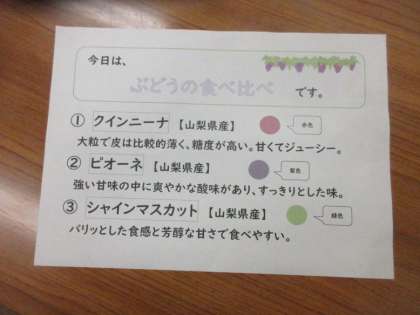 今日は、
ぶどうの食べ比べ です。
① クインニーナ 【山梨県産】 赤色
大粒で皮は比較的薄く、糖度が高い。甘くてジューシー。
② ピオーネ 【山梨県産】 紫色
強い甘味の中に爽やかな酸味があり、すっきりとした味。
③ シャインマスカット 【山梨県産】 緑色
パリッとした食感と芳醇な甘さで食べやすい。